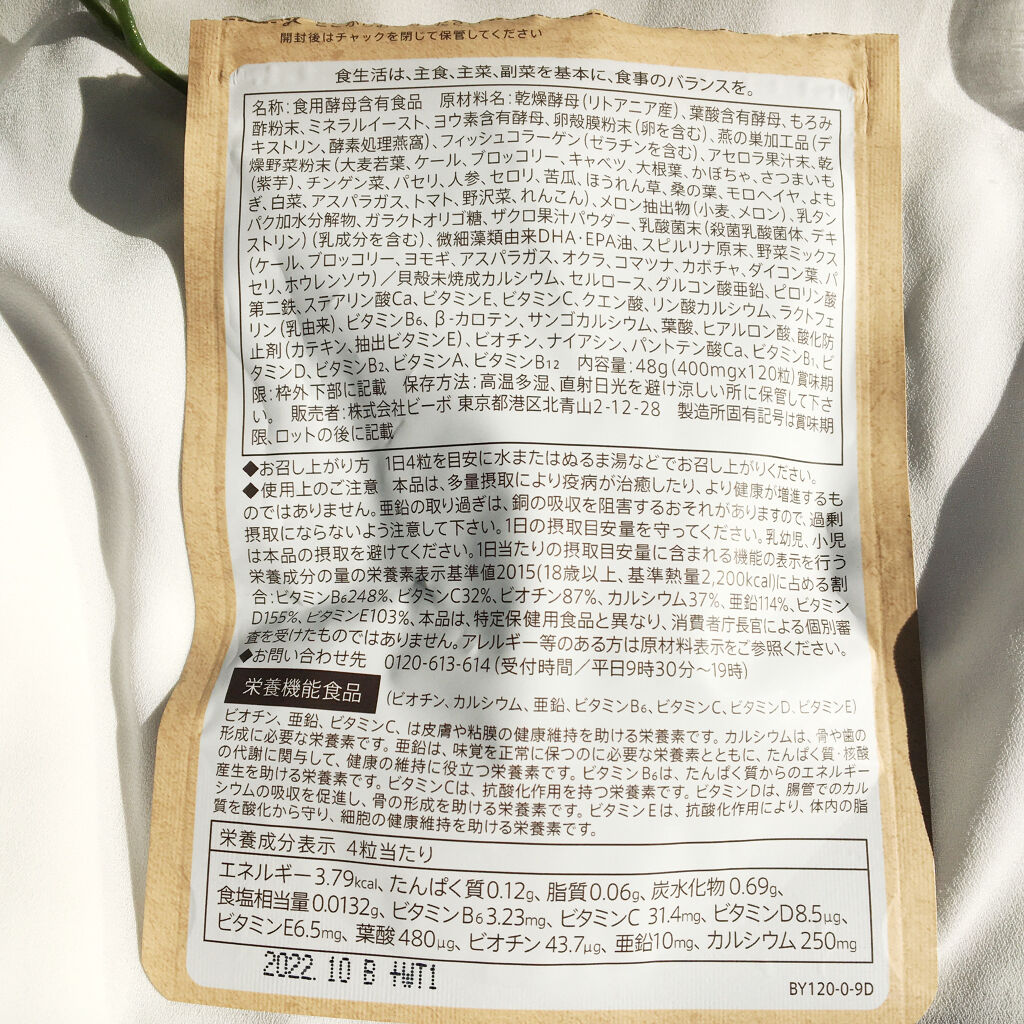 開封後はチャックを閉じて保管してください
食生活は、主食、主菜、副菜を基本に、食事のバランスを。
名称:食用酵母含有食品 原材料名:乾燥酵母(リトアニア産)、葉酸含有酵母、もろみ
酢粉末、ミネラルイースト、ヨウ素含有酵母、卵殻膜粉末(卵を含む)、燕の巣加工品(デ
キストリン、酵素処理燕窩)、フィッシュコラーゲン(ゼラチンを含む)、アセロラ果汁末、乾
燥野菜粉末(大麦若葉、ケール、ブロッコリー、キャベツ、大根葉、かぼちゃ、さつまいも
(紫芋)、チンゲン菜、パセリ、人参、セロリ、苦瓜、ほうれん草、桑の葉、モロヘイヤ、よも
ぎ、白菜、アスパラガス、トマト、野沢菜、れんこん)、メロン抽出物(小麦、メロン)、乳タン
パク加水分解物、ガラクトオリゴ糖、ザクロ果汁パウダー、乳酸菌末(殺菌乳酸菌体、デキ
ストリン)(乳成分を含む)、微細藻類由来DHA・EPA油、スピルリナ原末、野菜ミックス
(ケール、ブロッコリー、ヨモギ、アスパラガス、オクラ、コマツナ、カボチャ、ダイコン葉、パ
セリ、ホウレンソウ)／貝殻未焼成カルシウム、セルロース、グルコン酸亜鉛、ピロリン酸
第二鉄、ステアリン酸Ca、ビタミンE、ビタミンC、クエン酸、リン酸カルシウム、ラクトフェ
リン(乳由来)、ビタミンB6、β-カロテン、サンゴカルシウム、葉酸、ヒアルロン酸、酸化防
止剤(カテキン、抽出ビタミンE)、ビオチン、ナイアシン、パントテン酸Ca、ビタミンB1、ビ
タミンD、ビタミンB2、ビタミンA、ビタミンB12 内容量:48g(400mgx120粒)賞味期
限:枠外下部に記載 保存方法:高温多湿、直射日光を避け涼しい所に保管して下さ
い。 販売者:株式会社ビーボ 東京都港区北青山2-12-28 製造所固有記号は賞味期
限、ロットの後に記載
◆お召し上がり方 1日4粒を目安に水またはぬるま湯などでお召し上がりください。
◆使用上のご注意 本品は、多量摂取により疾病が治癒したり、より健康が増進するも
のではありません。亜鉛の取り過ぎは、銅の吸収を阻害するおそれがありますので、過剰
摂取にならないよう注意して下さい。1日の摂取目安量を守ってください。乳幼児、小児
は本品の摂取を避けてください。1日当たりの摂取目安量に含まれる機能の表示を行う
栄養成分の量の栄養素表示基準値2015(18歳以上、基準熱量2,200kcal)に占める割
合:ビタミンB6248%、ビタミンC32%、ビオチン87%、カルシウム37%、亜鉛114%、ビタミン
D155%、ビタミンE103%、本品は、特定保健用食品と異なり、消費者庁長官による個別審
査を受けたものではありません。アレルギー等のある方は原材料表示をご参照ください。
◆お問い合わせ先 0120-613-614(受付時間／平日9時30分～19時)
栄養機能食品 (ビオチン、カルシウム、亜鉛、ビタミンB6、ビタミンC、ビタミンD、ビタミンE)
ビオチン、亜鉛、ビタミンC、は皮膚や粘膜の健康維持を助ける栄養素です。カルシウムは、骨や歯の
形成に必要な栄養素です。亜鉛は、味覚を正常に保つのに必要な栄養素とともに、たんぱく質・核酸
の代謝に関与して、健康の維持に役立つ栄養素です。ビタミンB6は、たんぱく質からのエネルギー
産生を助ける栄養素です。ビタミンCは、抗酸化作用を持つ栄養素です。ビタミンDは、腸管でのカル
シウムの吸収を促進し、骨の形成を助ける栄養素です。ビタミンEは、抗酸化作用により、体内の脂
質を酸化から守り、細胞の健康維持を助ける栄養素です。
栄養成分表示 4粒当たり
エネルギー3.79kcal、たんぱく質0.12g、脂質0.06g、炭水化物0.69g、
食塩相当量0.0132g、ビタミンB6 3.23mg、ビタミンC 31.4mg、ビタミンD8.5μg、
ビタミンE6.5mg、葉酸480μg、ビオチン43.7μg、亜鉛10mg、カルシウム250mg
2022.10 B +WT1
BY120-0-9D